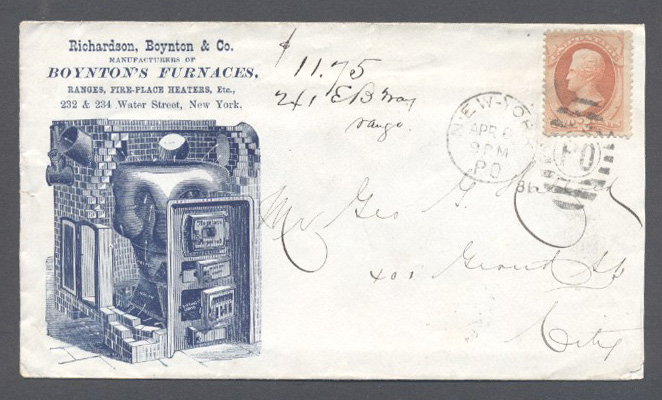 Richardson, Boynton & Co.
MANUFACTURERS OF
BOYNTON'S FURNACES,
RANGES, FIRE-PLACE HEATERS, Etc.,
232 & 234 Water Street, New York.
$ 11.75
241 E B Way
range.
NEW-YORK
APR 6
9 PM
PO
PO
Mr Geo G.
401 Grand St
City